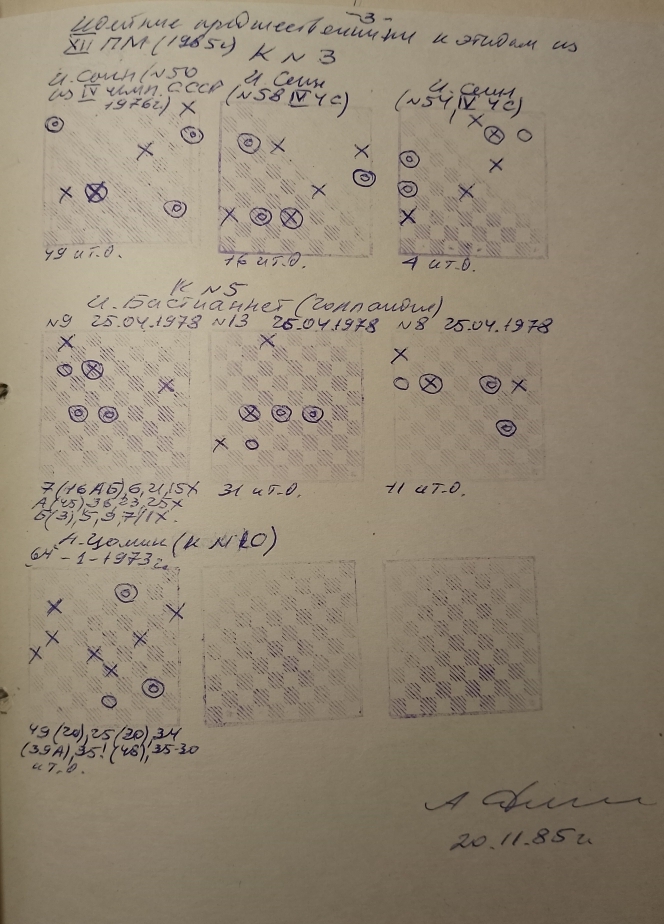 -3-
Идейные предшественники к этюдам из
XII ПМ (1985г)
К N 3
И. Сеин (N50
из IV чемп. СССР
1976г.)
И. Сеин
(N58 IV ЧС)
И. Сеин
(N54, IV ЧС)
49 и т.д.
16 и т.д.
4 и т.д.
К N 5
И. Бастианнет (Голландия)
N9 25.04.1978 N13 25.04.1978 N8 25.04.1978
7 (16 А Б), 6, 21, 15X
А (45) 36, 23, 25X
Б (3), 5, 9, 7/1X.
31 и т.д.
11 и т.д.
(К N 10)
64 - 1 - 1973г.
49 (20), 25 (30), 34
(39А), 35! (48), 35-30
и т.д.
20.11.85г.